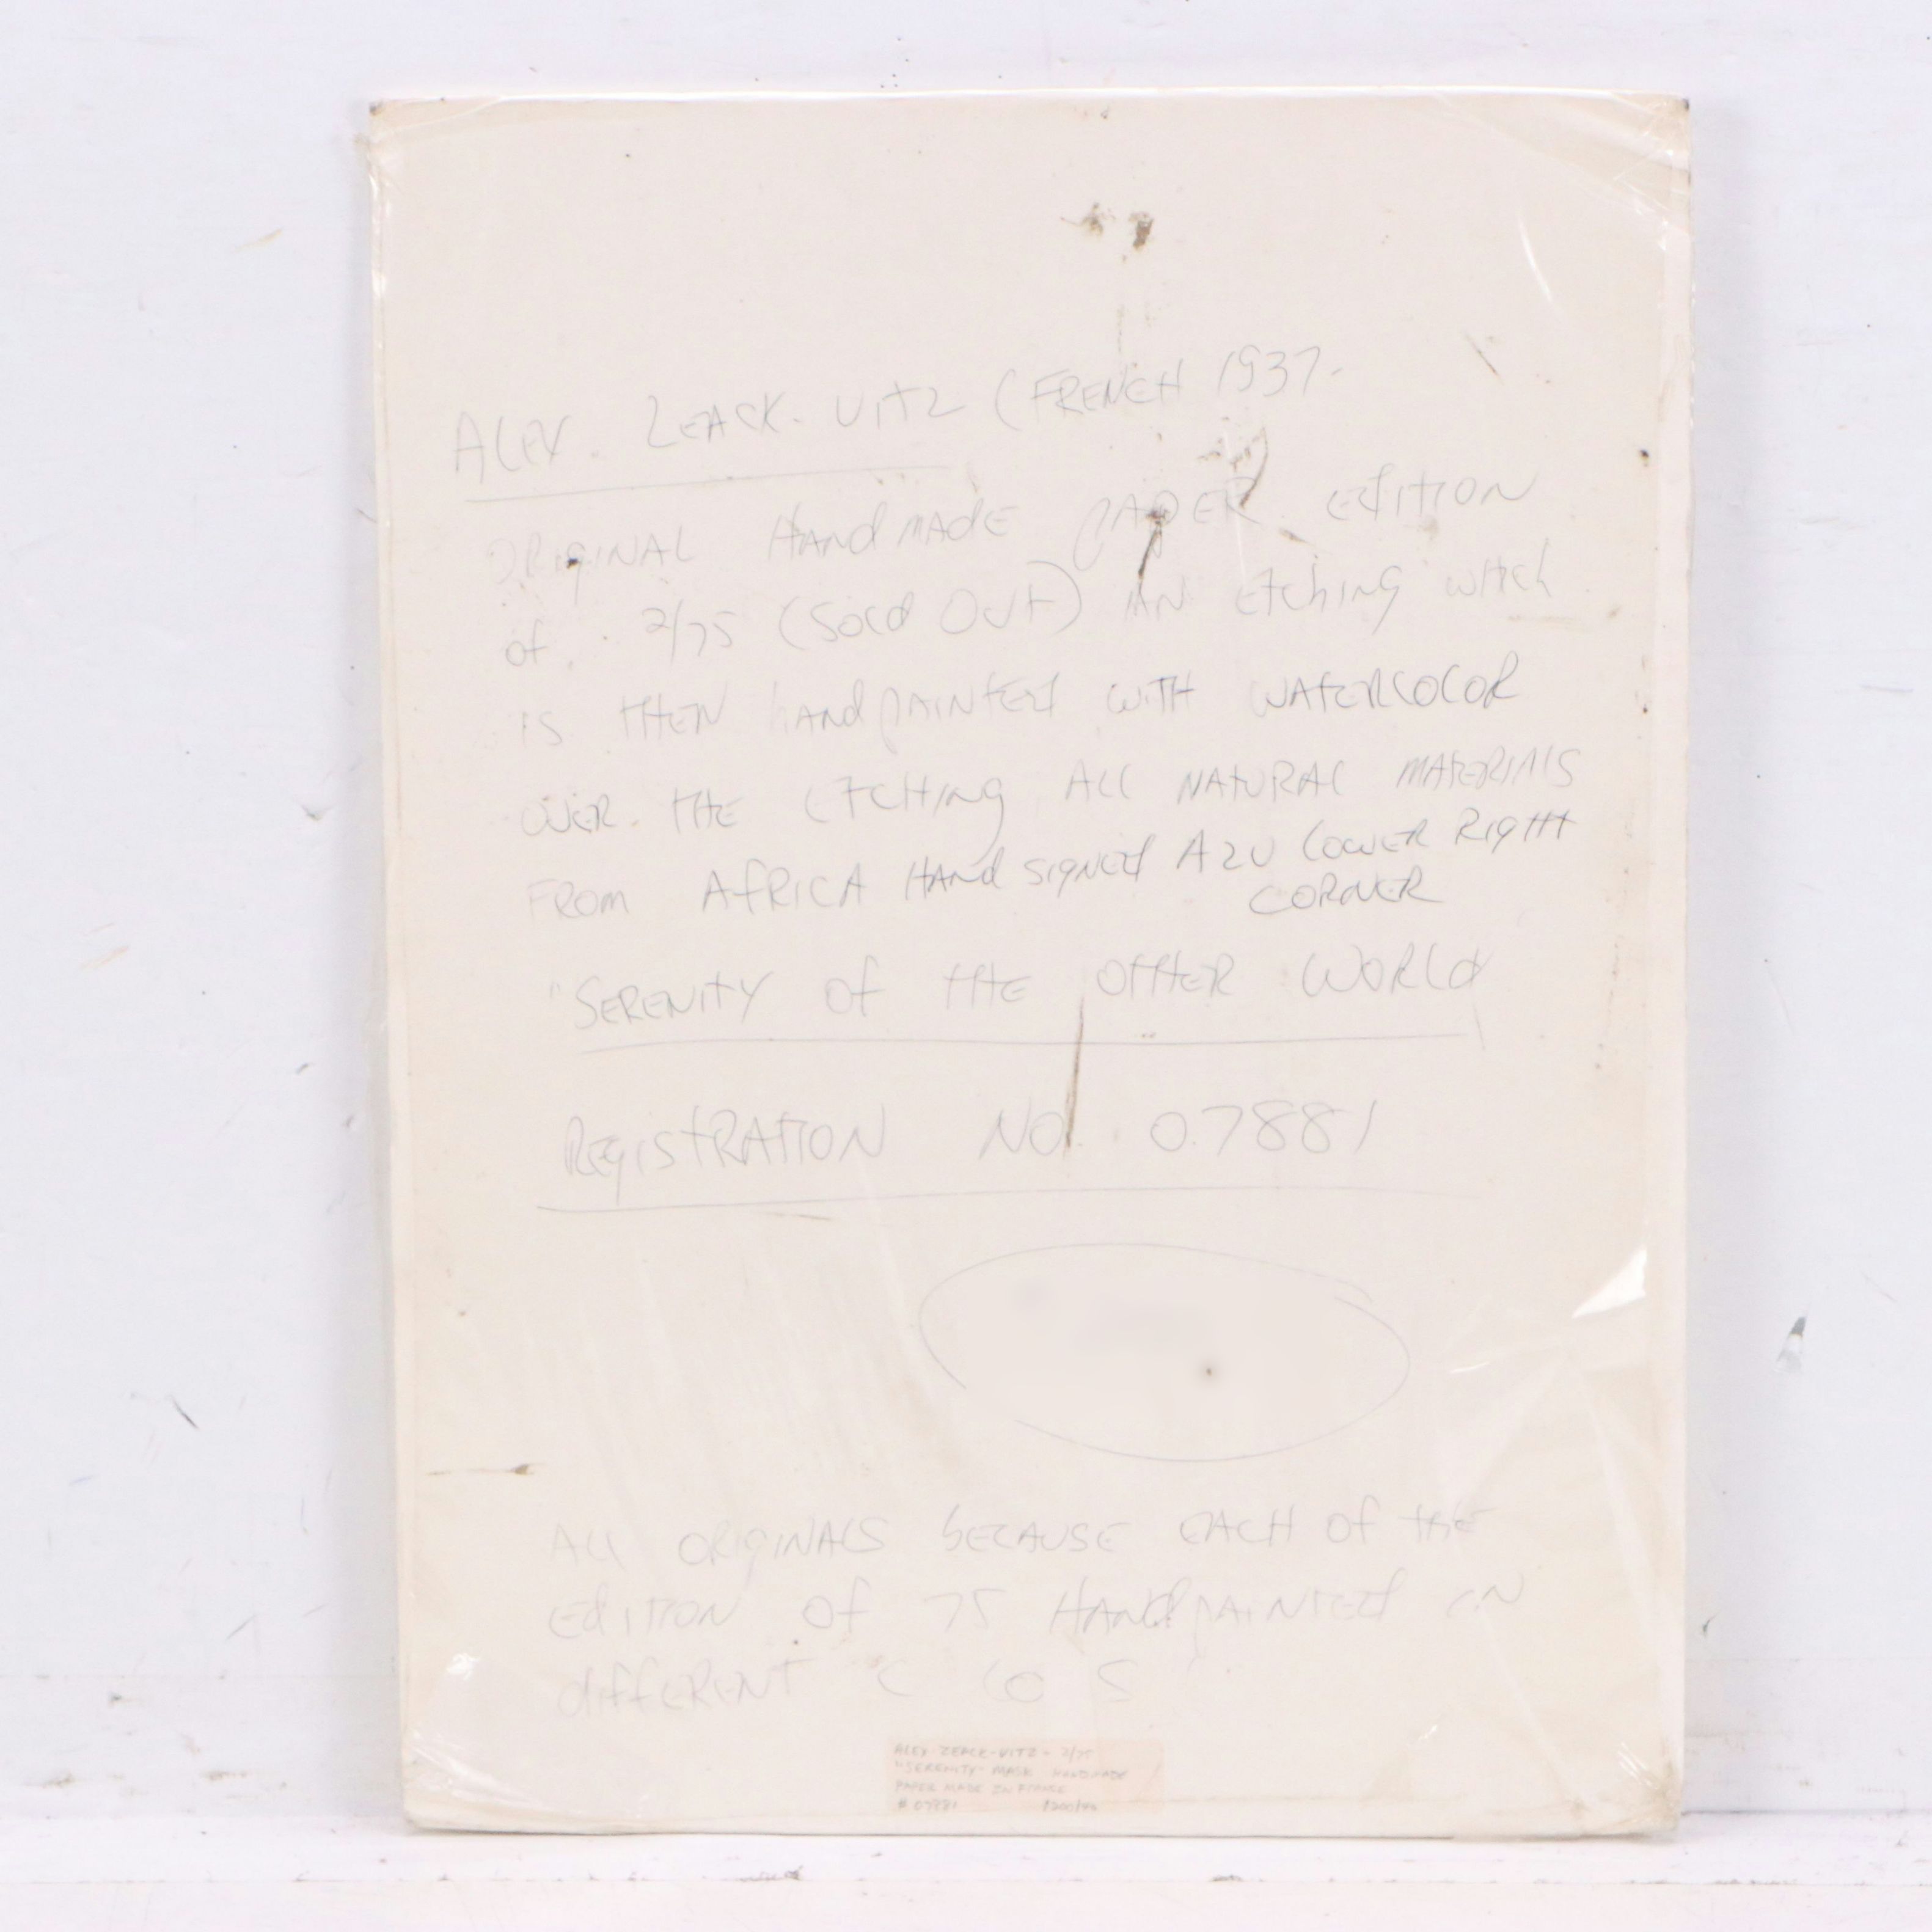 ALEX. ZEACK-VITZ (FRENCH 1937-
ORIGINAL HANdMAdE PAPER Edition
of 2/75 (Sold OUT) AN Etching which
is THEN hANdpAINTEd with WATERCOLOR
OVER THE ETCHING ALL NATURAL MATERIALS
FROM AFRICA HANd SIGNEd AZV LOWER RIGHT
CORNER
"SERENITY of THE OTHER WORLd
REGISTRATION NO. 07881
ALL ORIGINALS bECAUSE EACH Of THE
EdITION Of 75 HANdpAINTEd IN
diffERENT
ALEX ZEACK-VITZ - 2/75
"SERENITY MASK HANDMADE
PAPER MADE IN FRANCE
# 07881